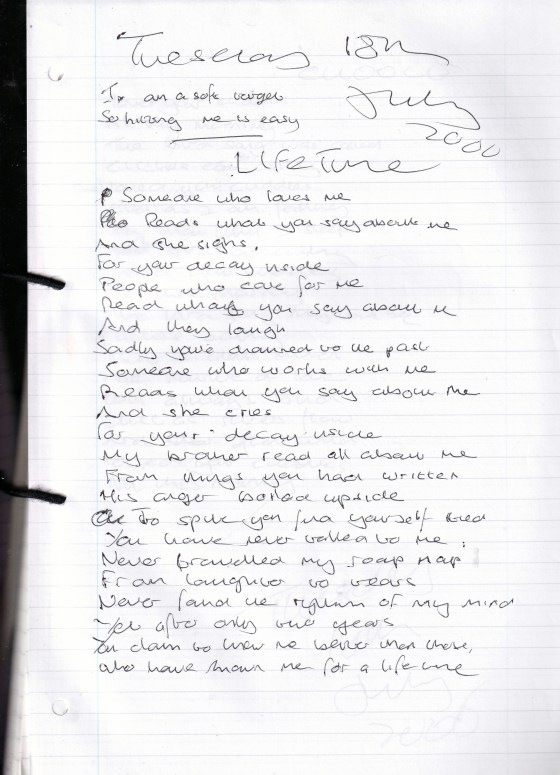 Tuesday 18th
July
2000
I'm an a soft target
So hitting me is easy
Lifetime
Someone who loves me
Reads what you say about me
And she sighs,
For your decay inside
People who care for me
Read what you say about me
And they laugh
Sadly you're chained to the past
Someone who works with me
Reads what you say about me
And she cries
For your decay inside
My brother read all about me
From things you had written
His anger boiled upside
To spite you find yourself
You have never talked to me;
Never travelled my road map
From laughter to tears
Never found the rhythm of my mind
Yet after only two years
You claim to know me better than those,
who have known me for a lifetime